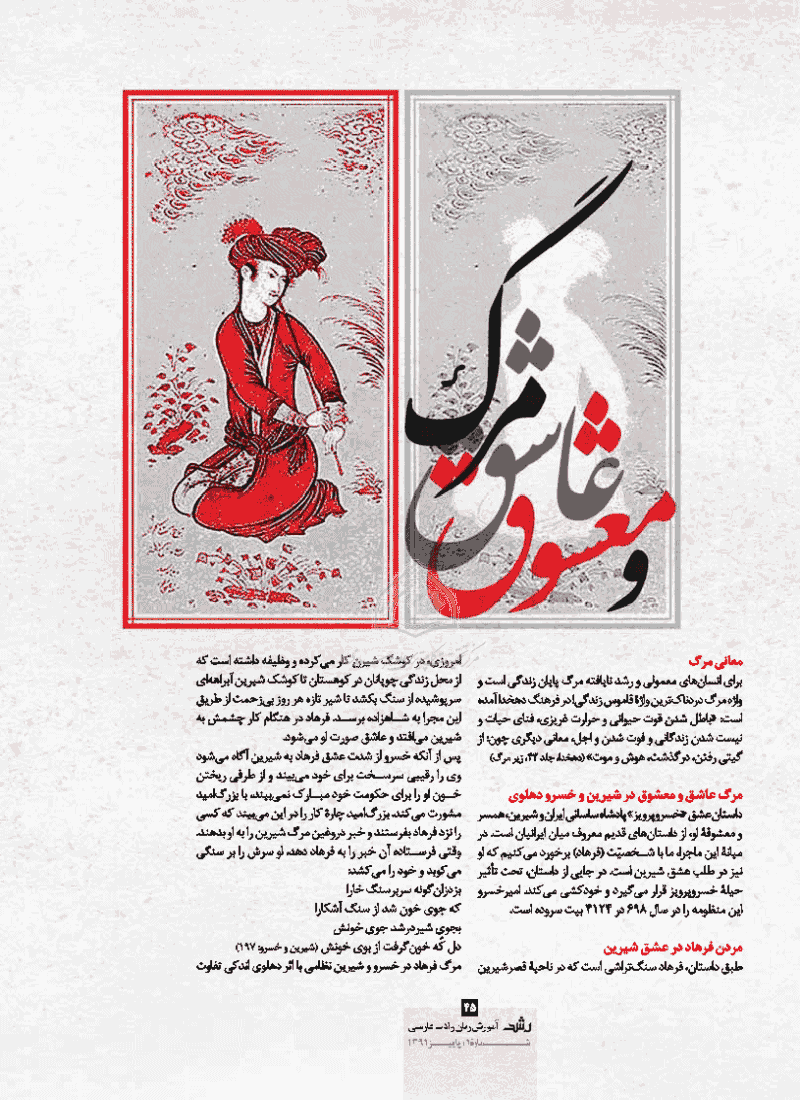 مرگ
عاشق
و معشوق
معانی مرگ
برای انسان‌های معمولی و رشد نایافته مرگ پایان زندگی است و
واژه مرگ دردناک‌ترین واژهٔ قاموس زندگی! در فرهنگ دهخدا آمده
است: «باطل شدن قوت حیوانی و حرارت غریزی، فنای حیات و
نیست شدن زندگانی و فوت شدن و اجل، معانی دیگری چون: از
گیتی رفتن، درگذشت، هوش و موت» (دهخدا، جلد ۴۳، زیر مرگ)
مرگ عاشق و معشوق در شیرین و خسرو دهلوی
داستان عشق «خسروپرویز» پادشاه ساسانی ایران و شیرین، همسر
و معشوقهٔ او، از داستان‌های قدیم معروف میان ایرانیان است. در
میانهٔ این ماجرا، ما با شخصیّت (فرهاد) برخورد می‌کنیم که او
نیز در طلب عشق شیرین است. در جایی از داستان، تحت تأثیر
حیلهٔ خسروپرویز قرار می‌گیرد و خودکشی می‌کند. امیرخسرو
این منظومه را در سال ۶۹۸ در ۴۱۲۴ بیت سروده است.
مردن فرهاد در عشق شیرین
طبق داستان، فرهاد سنگ‌تراشی است که در ناحیهٔ قصرشیرین
امروزی، در کوشک شیرن کار می‌کرده و وظیفه داشته است که
از محل زندگی چوپانان در کوهستان تا کوشک شیرین آبراهه‌ای
سرپوشیده از سنگ بکشد تا شیر تازه هر روز بی‌زحمت از طریق
این مجرا به شاهزاده برسد. فرهاد در هنگام کار چشمش به
شیرین می‌افتد و عاشق صورت او می‌شود.
پس از آنکه خسرو از شدت عشق فرهاد به شیرین آگاه می‌شود
وی را رقیبی سرسخت برای خود می‌بیند و از طرفی ریختن
خون او را برای حکومت خود مبارک نمی‌بیند، با بزرگ‌امید
مشورت می‌کند. بزرگ‌امید چارهٔ کار را در این می‌بیند که کسی
را نزد فرهاد بفرستند و خبر دروغین مرگ شیرین را به او بدهند.
وقتی فرستاده آن خبر را به فرهاد دهد، او سرش را بر سنگی
می‌کوبد و خود را می‌کشد:
بزد زان‌گونه سر بر سنگ خارا
که جوی خون شد از سنگ آشکارا
بجوی شیر در شد جوی خونش
دل که خون گرفت از بوی خونش (شیرین و خسرو: ۱۹۷)
مرگ فرهاد در خسرو و شیرین نظامی با اثر دهلوی اندکی تفاوت
۴۵
رشد آموزش زبان و ادب فارسی